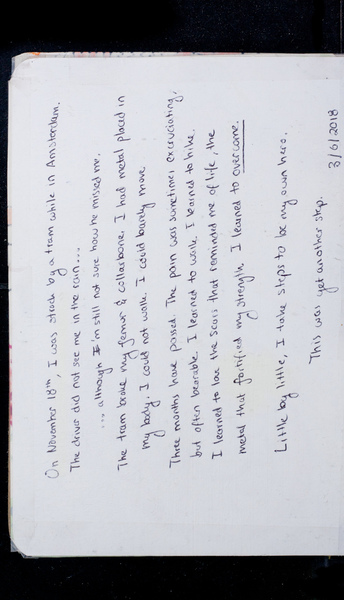 On November 18th, I was struck by a tram while in Amsterdam.
The driver did not see me in the rain...
... although I'm still not sure how he missed me.
The tram broke my femur & collarbone. I had metal placed in
my body. I could not walk. I could barely move.
Three months have passed. The pain was sometimes excruciating,
but often bearable. I learned to walk. I learned to hike.
I learned to love the scars that reminded me of life, the
metal that fortified my strength. I learned to overcome.
Little by little, I take steps to be my own hero.
This was yet another step.
3/6/2018